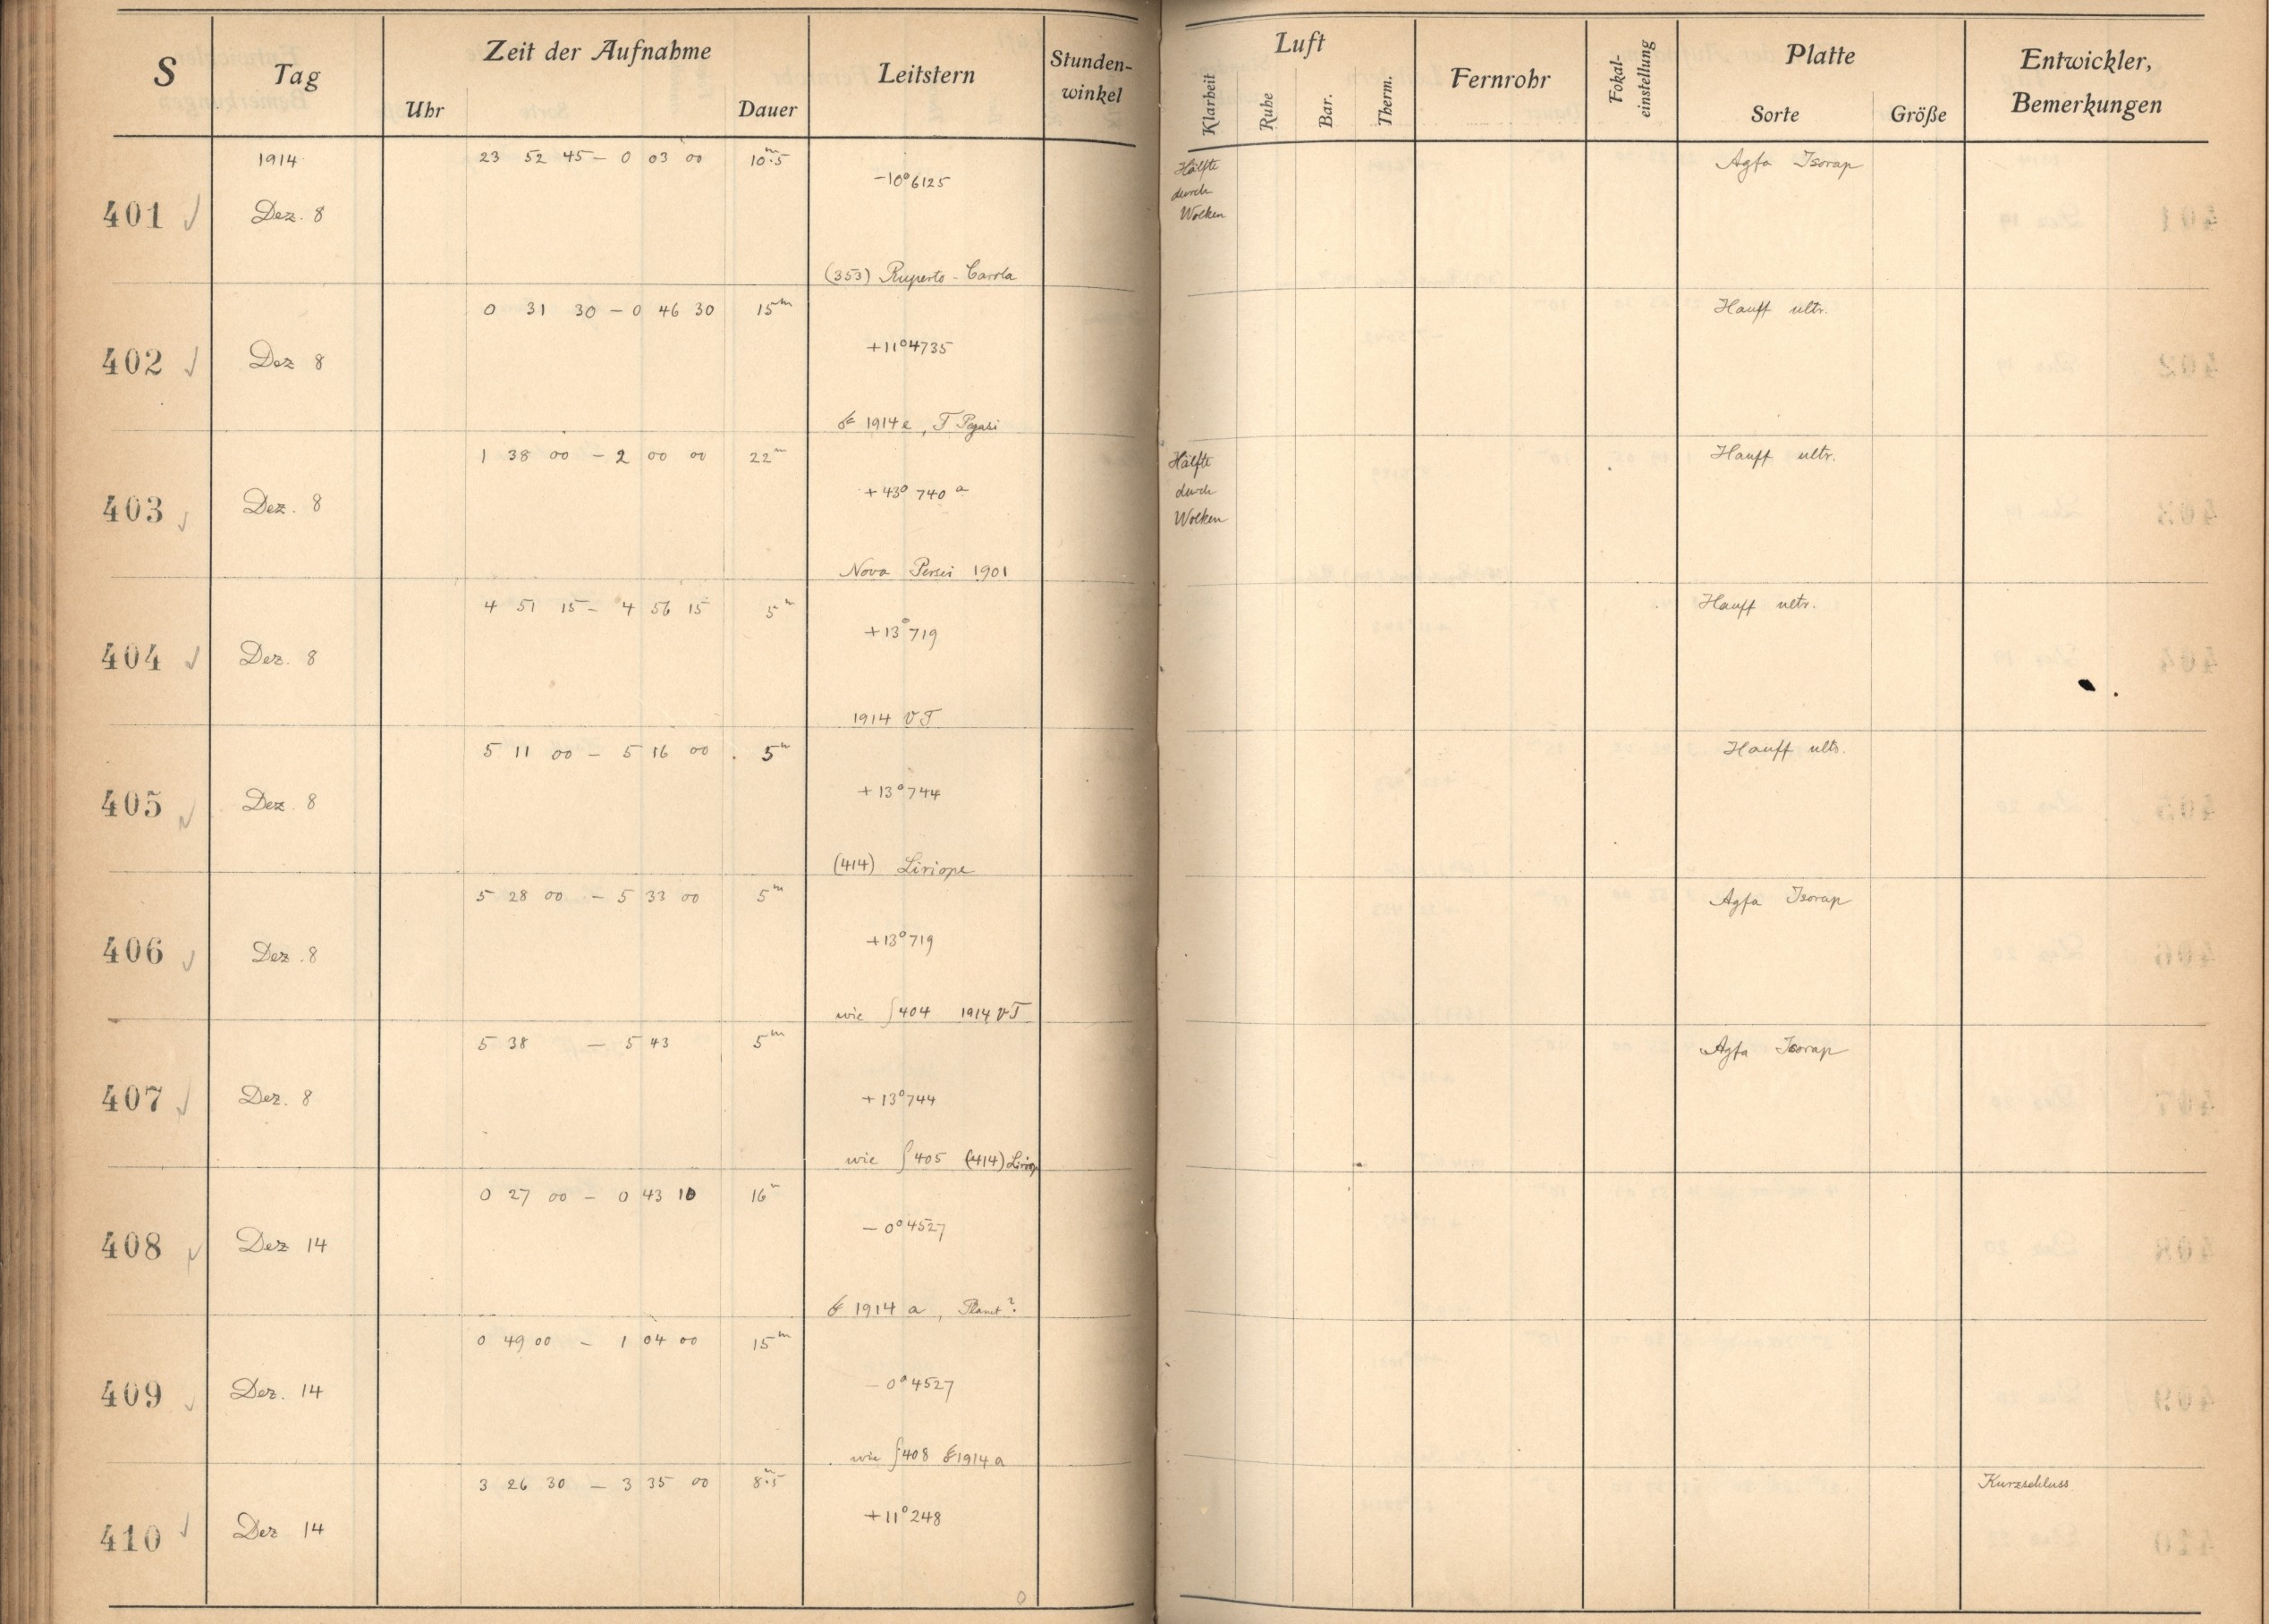 S Tag Zeit der Aufnahme Leitstern Stunden-winkel Luft Fernrohr Fokal-einstellung Platte Entwickler, Bemerkungen
Uhr Dauer Klarheit Ruhe Bar. Therm. Sorte Größe
1914 23 52 45 – 0 03 00 10m.5 Agfa Isorap
401 Dez. 8 -10°6125 Hälfte durch Wolken
(353) Ruperto-Carola
0 31 30 – 0 46 30 15m Hauff ultr.
402 Dez 8 +11°4735
1914 e, T Pegasi
1 38 00 – 2 00 00 22m Hauff ultr.
403 Dez. 8 +43° 740 a Hälfte durch Wolken
Nova Persei 1901
4 51 15 – 4 56 15 5m Hauff ultr.
404 Dez. 8 +13°719
1914 VT
5 11 00 – 5 16 00 5m Hauff ultr.
405 Dez. 8 +13°744
(414) Liriope
5 28 00 – 5 33 00 5m Agfa Isorap
406 Dez. 8 +13°719
wie S404 1914 VT
5 38 – 5 43 5m Agfa Isorap
407 Dez. 8 +13°744
wie S405 (414) Liriope
0 27 00 – 0 43 10 16m
408 Dez 14 -0°4527
1914 a, Planet?
0 49 00 – 1 04 00 15m
409 Dez. 14 -0°4527
wie S408 1914 a
3 26 30 – 3 35 00 8m.5 Kurzschluss
410 Dez 14 +11°248
0